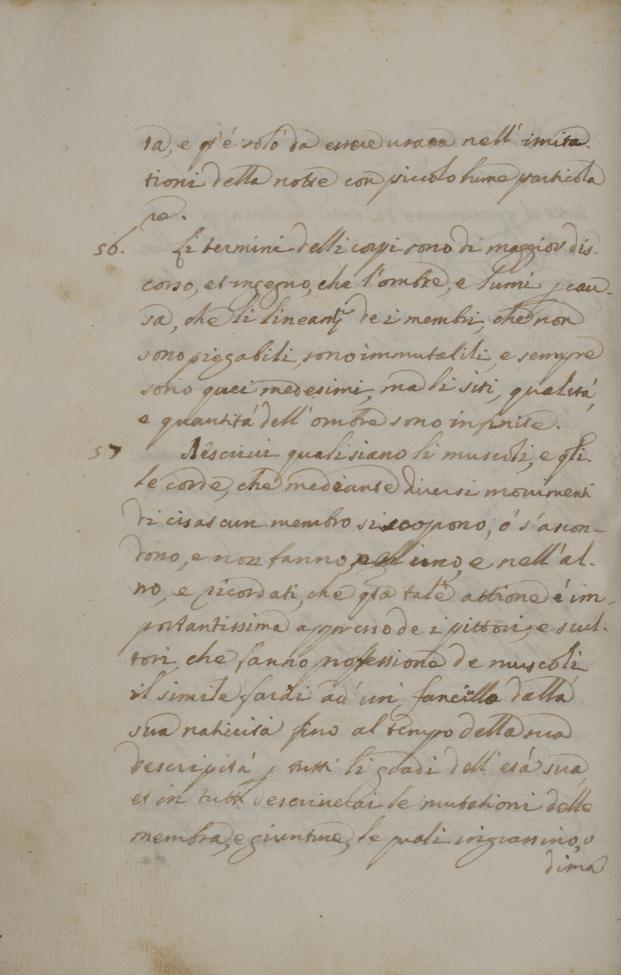 ta, e q.ª é solo da essere usata nell' imita
tioni della notte con piccolo lume particola
re.
56. Li termini delli corpi sono di maggior dis-
corso, et ingegno, che l'ombre, e lumi p cau-
sa, che li lineam.ti de i membri, che non
sono piegabili, sono immutabili, e sempre
sono quei medesimi, ma li siti, qualitá,
e quantitá dell' ombre sono infinite.
57 Descrivi quali siano li muscoli, e q.li
le corde, che mediante diversi movimenti
di ciascun membro si scopono, ó s'ascon-
dono, e non fanno, nell' uno, e nell' al-
no, e ricordati, che q.ta tale attione é im-
portantissima appresso de i pittori, e scul-
tori, che fanno professione de muscoli
il simile farai ad' un' fanciullo dalla
sua nativitá fino al tempo della sua
descripitá p tutti li gradi dell' etá sua
et in tutti descriverai le mutationi delle
membra, e giunture, le quali ingrassino, o
dima